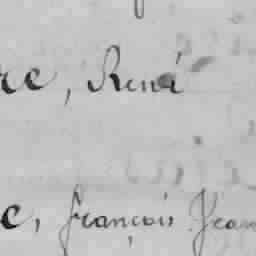 re, René
e, françois Jean